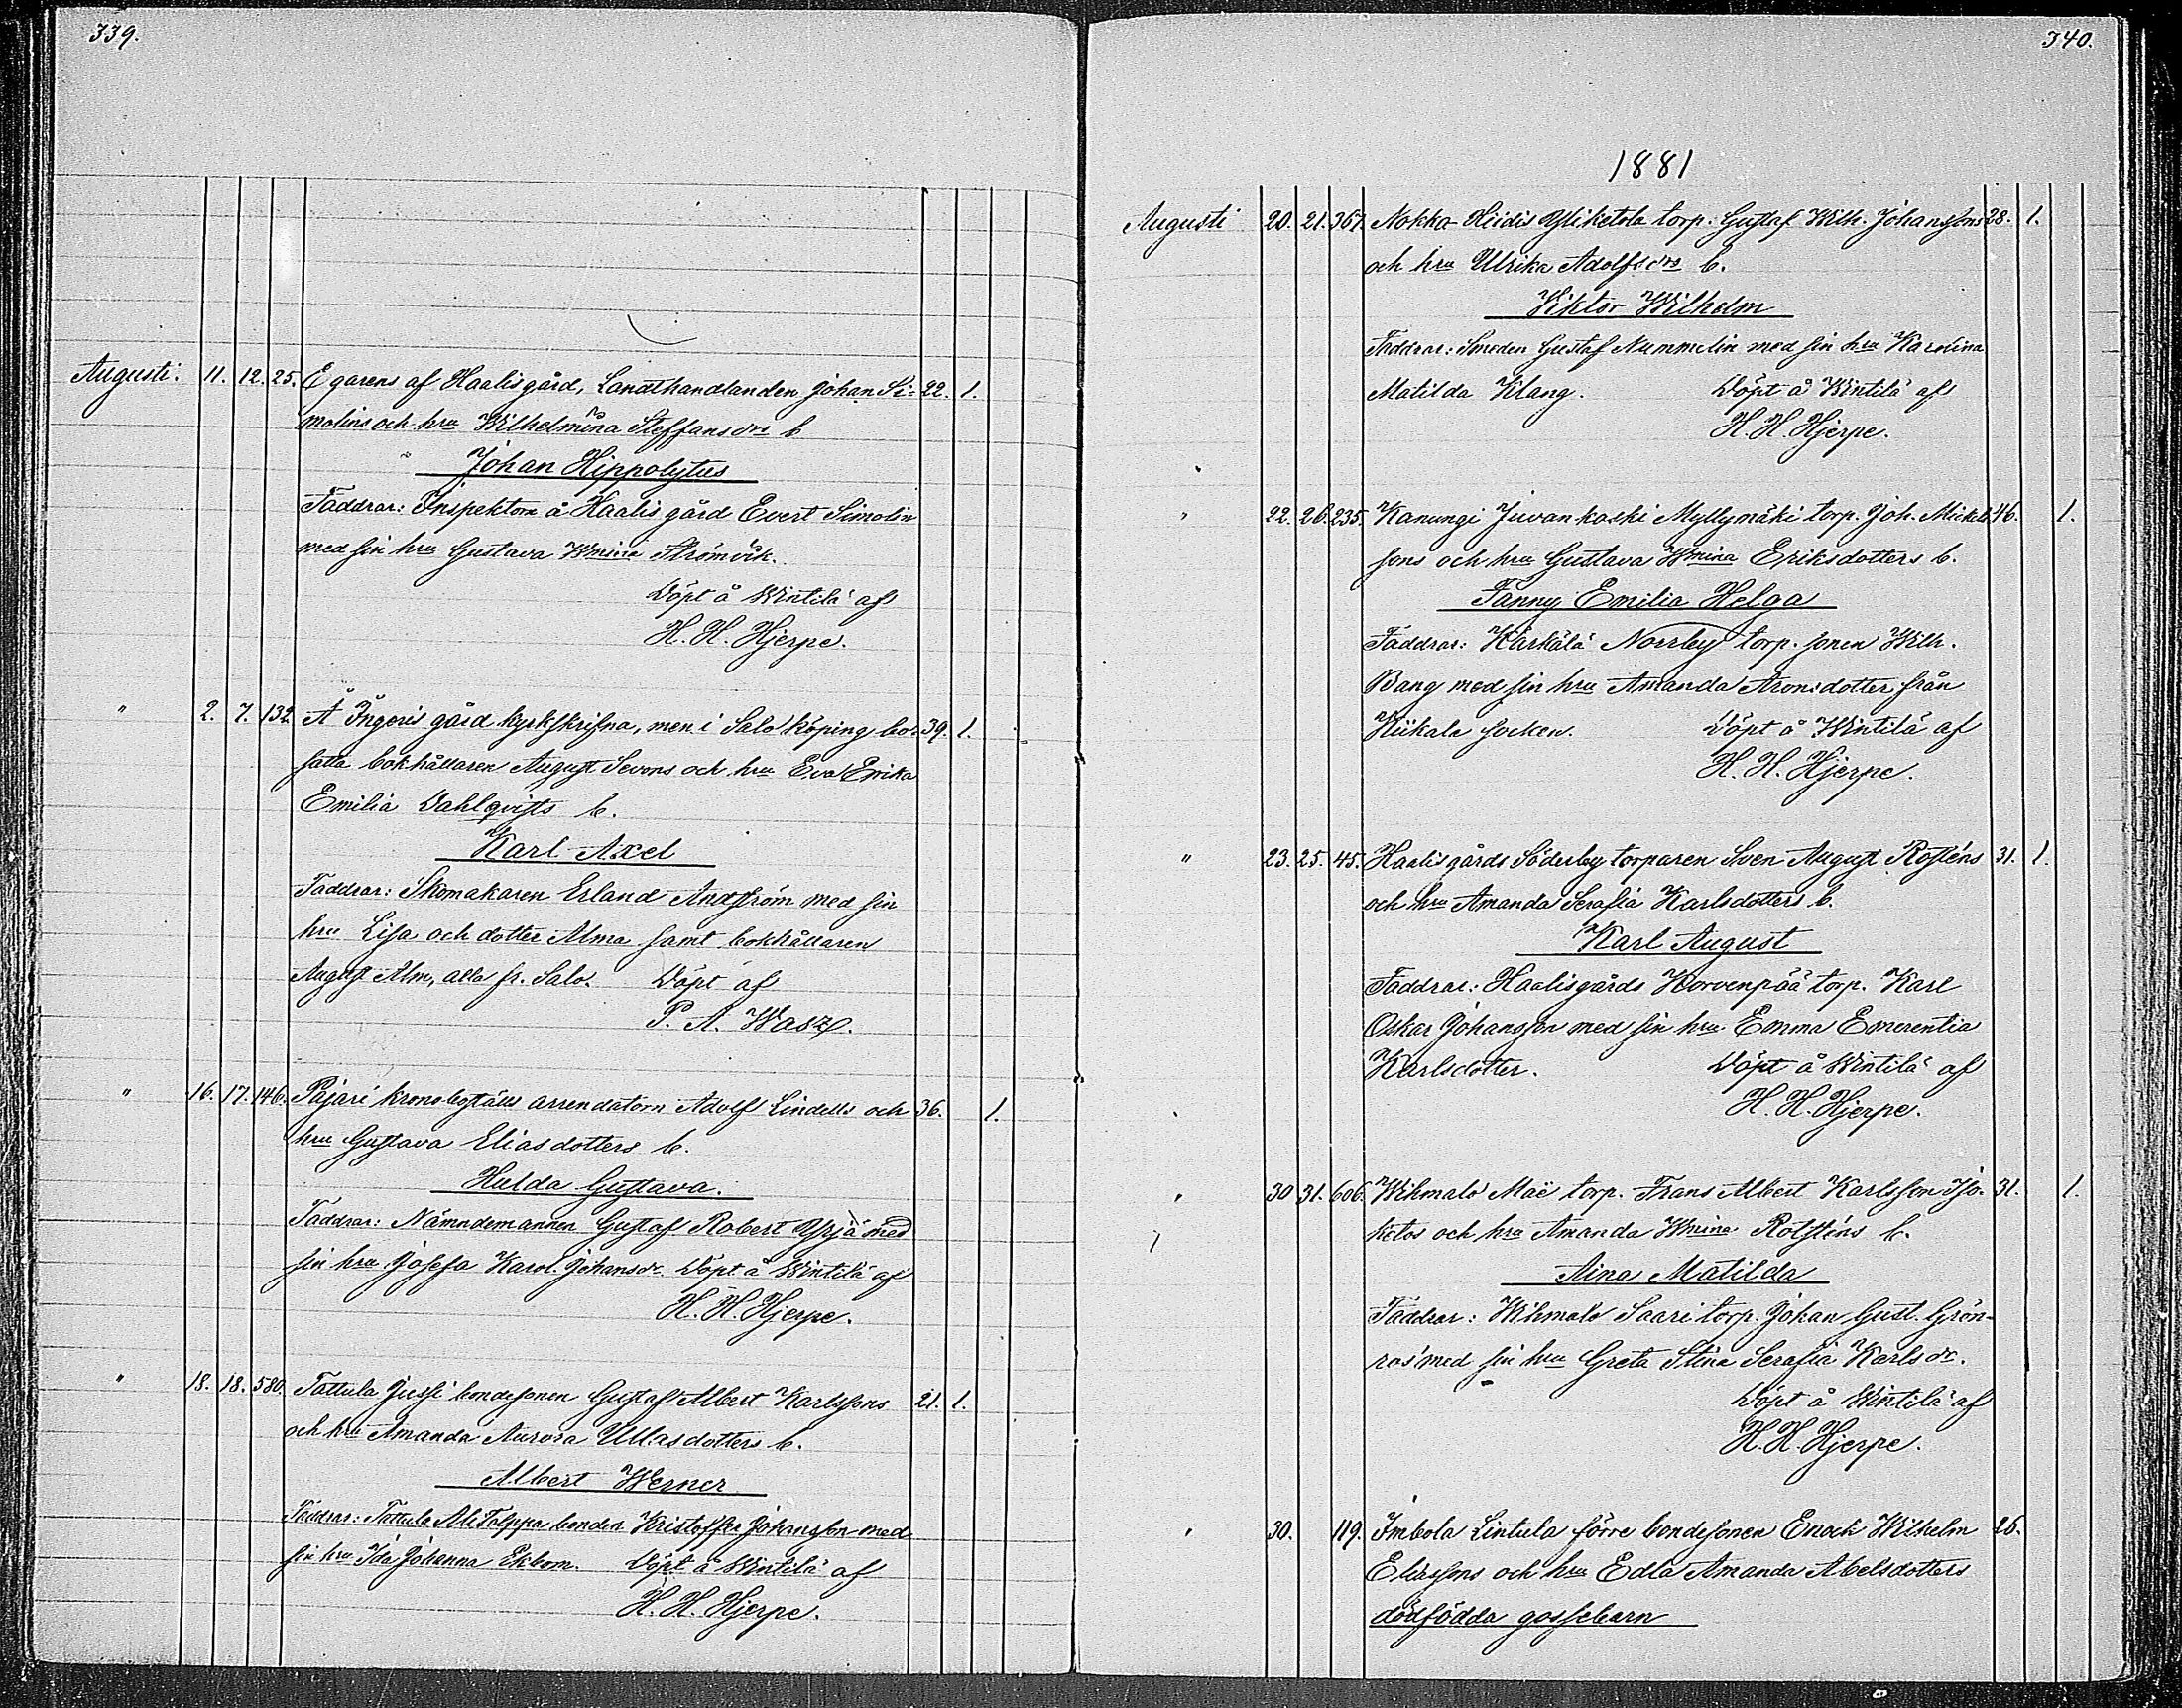 339.
Augusti. 11. 12. 25. Egarens af Haalis gård, Landthandlanden Johan Si- 22. 1.
molins och hru Wilhelmina Steffansdrs b
Johan Hippolytus
Faddrar: Inspektorn å Haalis gård Evert Simolin
med sin hru Gustava Wmina Strömvik.
Döpt å Wintilä af
H. H. Hjerpe.
" 2. 7. 132. Å Ingeris gård kyrkskrifna, men i Salo köping bo- 39. 1.
satta bokhållaren August Sevons och hru Eva Erika
Emilia Dahlqvists b.
Karl Axel
Faddrar: Skomakaren Erland Andström med sin
hru Lisa och dotter Alma samt bokhållaren
August Alm, alla fr. Salo. Döpt af
P. A. Wasz.
" 16. 17. 146. Pajari kronoboställs arrendatorn Adolf Lindells och 36. 1.
hru Gustava Eliasdotters b.
Hulda Gustava.
Faddrar: Nämndemannen Gustaf Robert Yrjä med
sin hru Josefa Karol. Johansdr. Döpt å Wintilä af
H. H. Hjerpe.
" 18. 18. 580. Tattula Jussi bondesonen Gustaf Albert Karlssons 21. 1.
och hru Amanda Aurora Ullasdotters b.
Albert Werner
Faddrar: Tattula Ali Tolppa bonden Kristoffer Johansson med
sin hru Ida Johanna Ekbom. Döpt å Wintilä af
H. H. Hjerpe.
340.
1881
Augusti 20. 21. 367. Nokka Hiidis Yliketola torp. Gustaf Wilh. Johanssons 28. 1.
och hru Ulrika Adolfsdrs b.
Viktor Wilhelm
Faddrar: Smeden Gustaf Nummelin med sin hru Karolina
Matilda Klang. Döpt å Wintilä af
H. H. Hjerpe.
" 22. 26. 235. Kanungi Juvankoski Myllymäki torp. Joh. Mickels- 46. 1.
sons och hru Gustava Wmina Eriksdotters b.
Fanny Emilia Helga
Faddrar: Kärkälä Norrby torp. sonen Wilh.
Bang med sin hru Amanda Aronsdotter från
Kiikala socken. Döpt å Wintilä af
H. H. Hjerpe.
" 23. 25. 45. Haalis gårds Söderby torparen Sven August Rosténs 31. 1.
och hru Amanda Serafia Karlsdotters b.
Karl August
Faddrar: Haalisgårds Korvenpää torp. Karl
Oskar Johansson med sin hru Emma Emerentia
Karlsdotter. Döpt å Wintilä af
H. H. Hjerpe.
" 30 31. 606. Wihmalo Maë torp. Frans Albert Karlsson Iso- 31. 1.
ketos och hru Amanda Wmina Rotsténs b.
Aina Matilda
Faddrar: Wihmalo Saari torp. Johan Gust. Grön-
ros med sin hru Greta Stina Serafia Karlsdr.
Döpt å Wintilä af
H. H. Hjerpe.
" 30. 119. Imbola Lintula förre bondesonen Enoch Wilhelm 26.
Eliassons och hru Edla Amanda Abelsdotters
dödfödda gossebarn